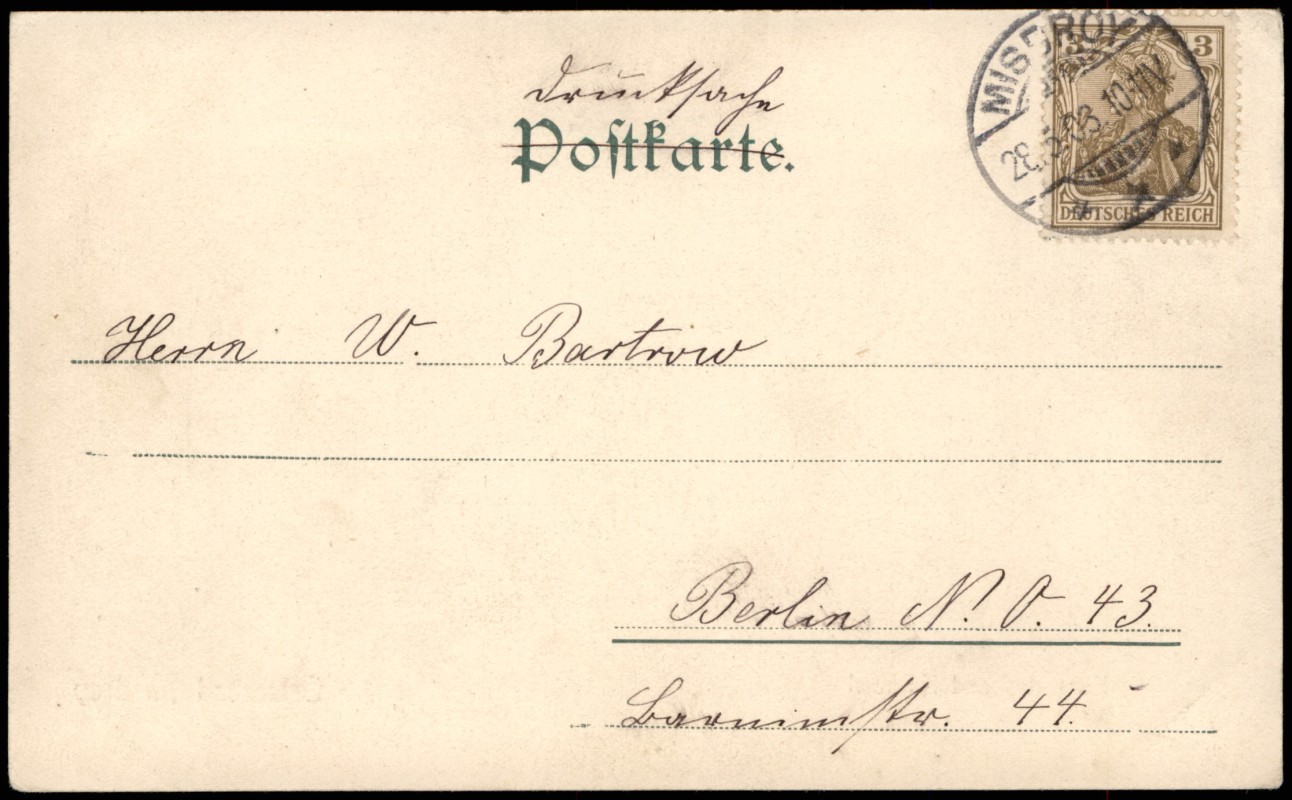 Drucksache
Postkarte.
MISDROY
3 3
10-11V.
DEUTSCHES REICH
Herrn W. Bartrow
Berlin N. O. 43.
Barnimstr. 44.